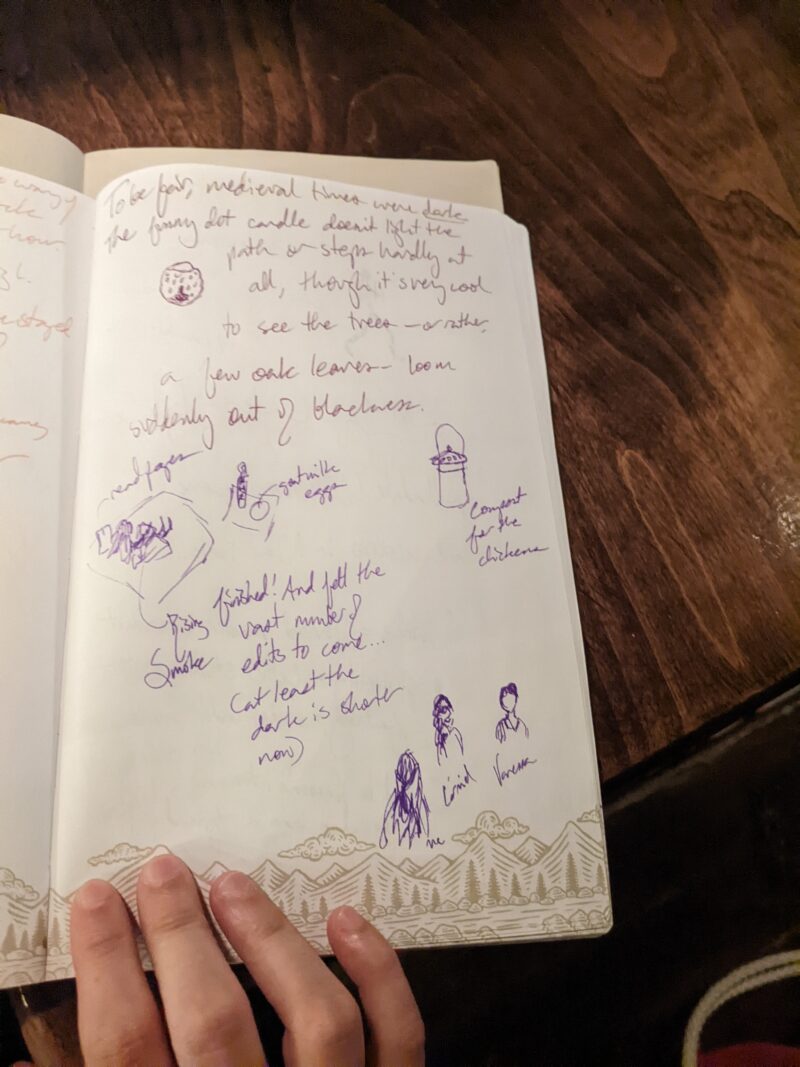 way of
how
stayed
To be fair, medieval times were dark
the funny dot candle doesn't light the
path or steps hardly at
all, though it's very cool
to see the trees — or rather,
a few oak leaves — loom
suddenly out of blackness.
read pages
goat milk
eggs
compost
for the
chickens
Rising
Smoke
finished! And felt the
vast number of
edits to come...
(at least the
dark is shorter
now)
me
Vanessa